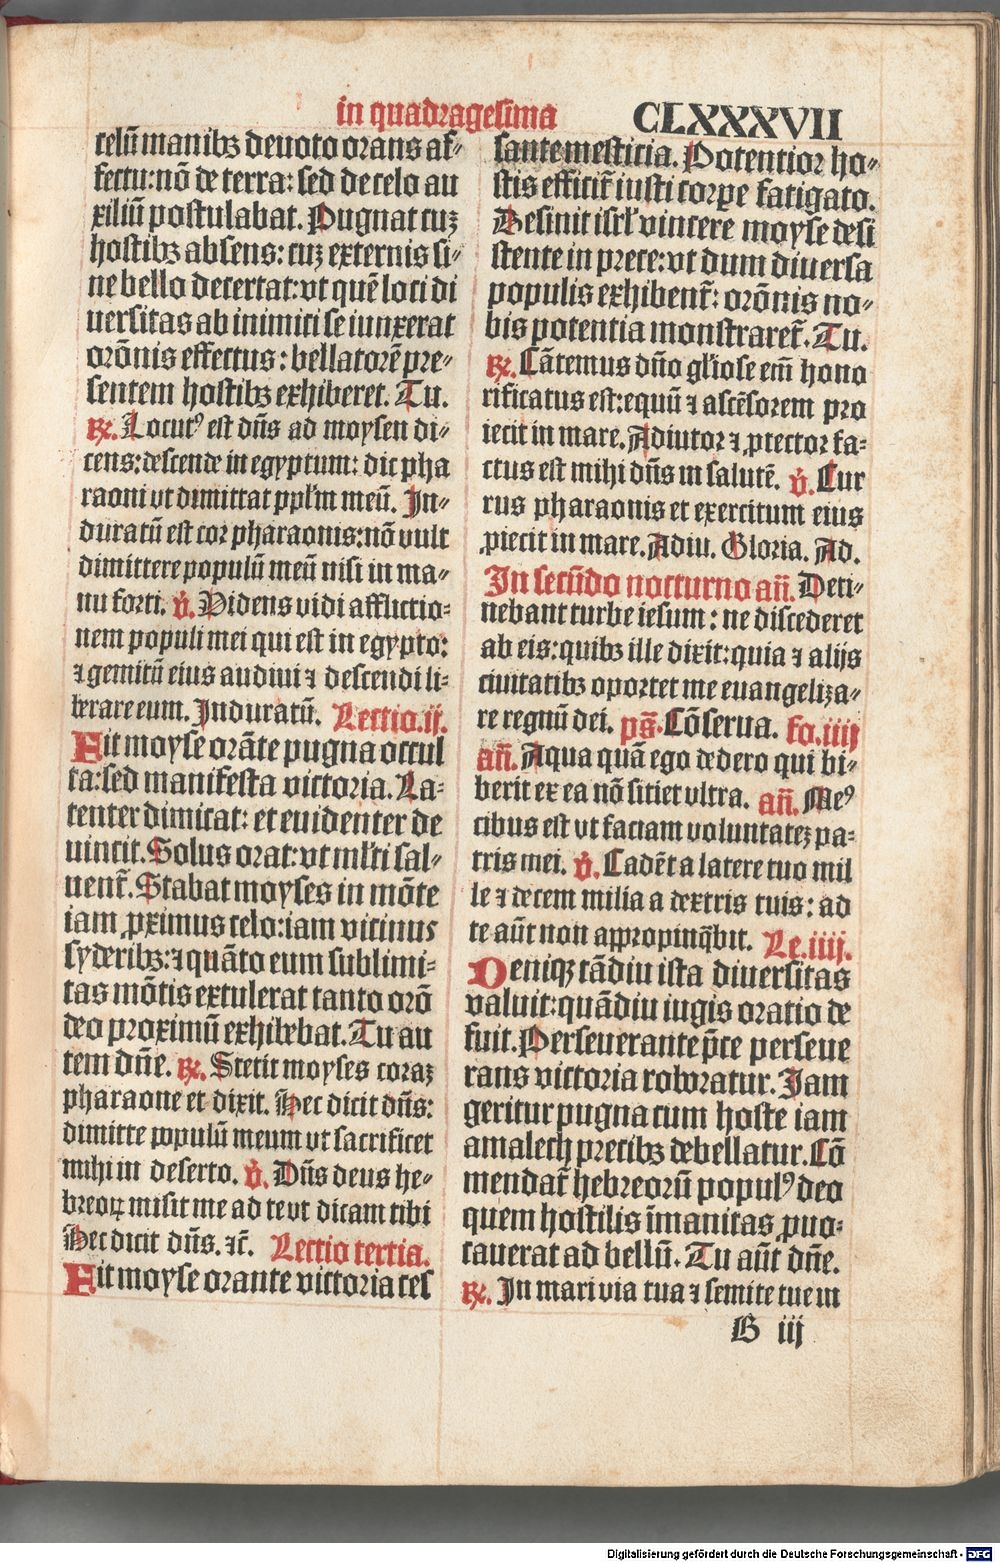 in quadragesima
CLXXXVII
celū manibꝫ deuoto orans af⸗
fectu:nō de terra: sed de celo au
xiliū postulabat. Pugnat cuꝫ
hostibꝫ absens: cuꝫ externis si⸗
ne bello decertat:vt quē loci di
uersitas ab inimici se iunxerat
orōnis effectus: bellatorē pre⸗
sentem hostibꝫ exhiberet. Tu.
℞. Locutꝰ est dn̄s ad moysen di⸗
cens:descende in egyptum: dic pha
raoni vt dimittat ppl'm meū. In⸗
duratū est cor pharaonis:nō vult
dimittere populū meū nisi in ma⸗
nu forti. v̇. Videns vidi afflictio⸗
nem populi mei qui est in egypto:
⁊ gemitū eius audiui ⁊ descendi li⸗
berare eum. Induratū. Lectio.ij.
Fit moyse orāte pugna occul
ta:sed manifesta victoria. La⸗
tenter dimicat: et euidenter de
uincit. Solus orat:vt ml'ti sal⸗
uent᷑. Stabat moyses in mōte
iam ꝓximus celo:iam vicinus
syderibꝫ:⁊ quāto eum sublimi⸗
tas mōtis extulerat tanto orō
deo proximū exhibebat. Tu au
tem dn̄e. ℞. Stetit moyses coraꝫ
pharaone et dixit. Hec dicit dn̄s:
dimitte populū meum vt sacrificet
mihi in deserto. v̇. Dn̄s deus he⸗
breoꝝ misit me ad te vt dicam tibi
Hec dicit dn̄s. ⁊c̄. Lectio tertia.
Fit moyse orante victoria ces
sante mesticia. Potentior ho⸗
stis efficit᷑ iusti corpe fatigato.
Desinit isrl' vincere moyse desi
stente in prece:vt dum diuersa
populis exhibent᷑: orōnis no⸗
bis potentia monstraret᷑. Tu.
℞. Cātemus dn̄o gl'iose em̄ hono
rificatus est:equū ⁊ ascēsorem pro
iecit in mare. Adiutor ⁊ ꝓtector fa⸗
ctus est mihi dn̄s in salutē. v̇. Cur
rus pharaonis et exercitum eius
ꝓiecit in mare. Adiu. Gloria. Ad.
In secūdo nocturno an̄. Deti⸗
nebant turbe iesum: ne discederet
ab eis:quibꝫ ille dixit:quia ⁊ alijs
ciuitatibꝫ oportet me euangeliza⸗
re regnū dei. ps̄. Cōserua. fo.iiij
an̄. Aqua quā ego dedero qui bi⸗
berit ex ea nō sitiet vltra. an̄. Meꝰ
cibus est vt faciam voluntateꝫ pa⸗
tris mei. v̇. Cadēt a latere tuo mil
le ⁊ decem milia a dextris tuis: ad
te aūt non appropinq̄bit. Le.iiij.
Deniqꝫ tādiu ista diuersitas
valuit:quādiu iugis oratio de
fuit. Perseuerante p̄ce perseue
rans victoria roboratur. Iam
geritur pugna cum hoste iam
amalech precibꝫ debellatur. Cō
mendat᷑ hebreorū populꝰ deo
quem hostilis īmanitas ꝓuo⸗
cauerat ad bellū. Tu aūt dn̄e.
℞. In mari via tua ⁊ semite tue in
B iij
Digitalisierung gefördert durch die Deutsche Forschungsgemeinschaft - DFG